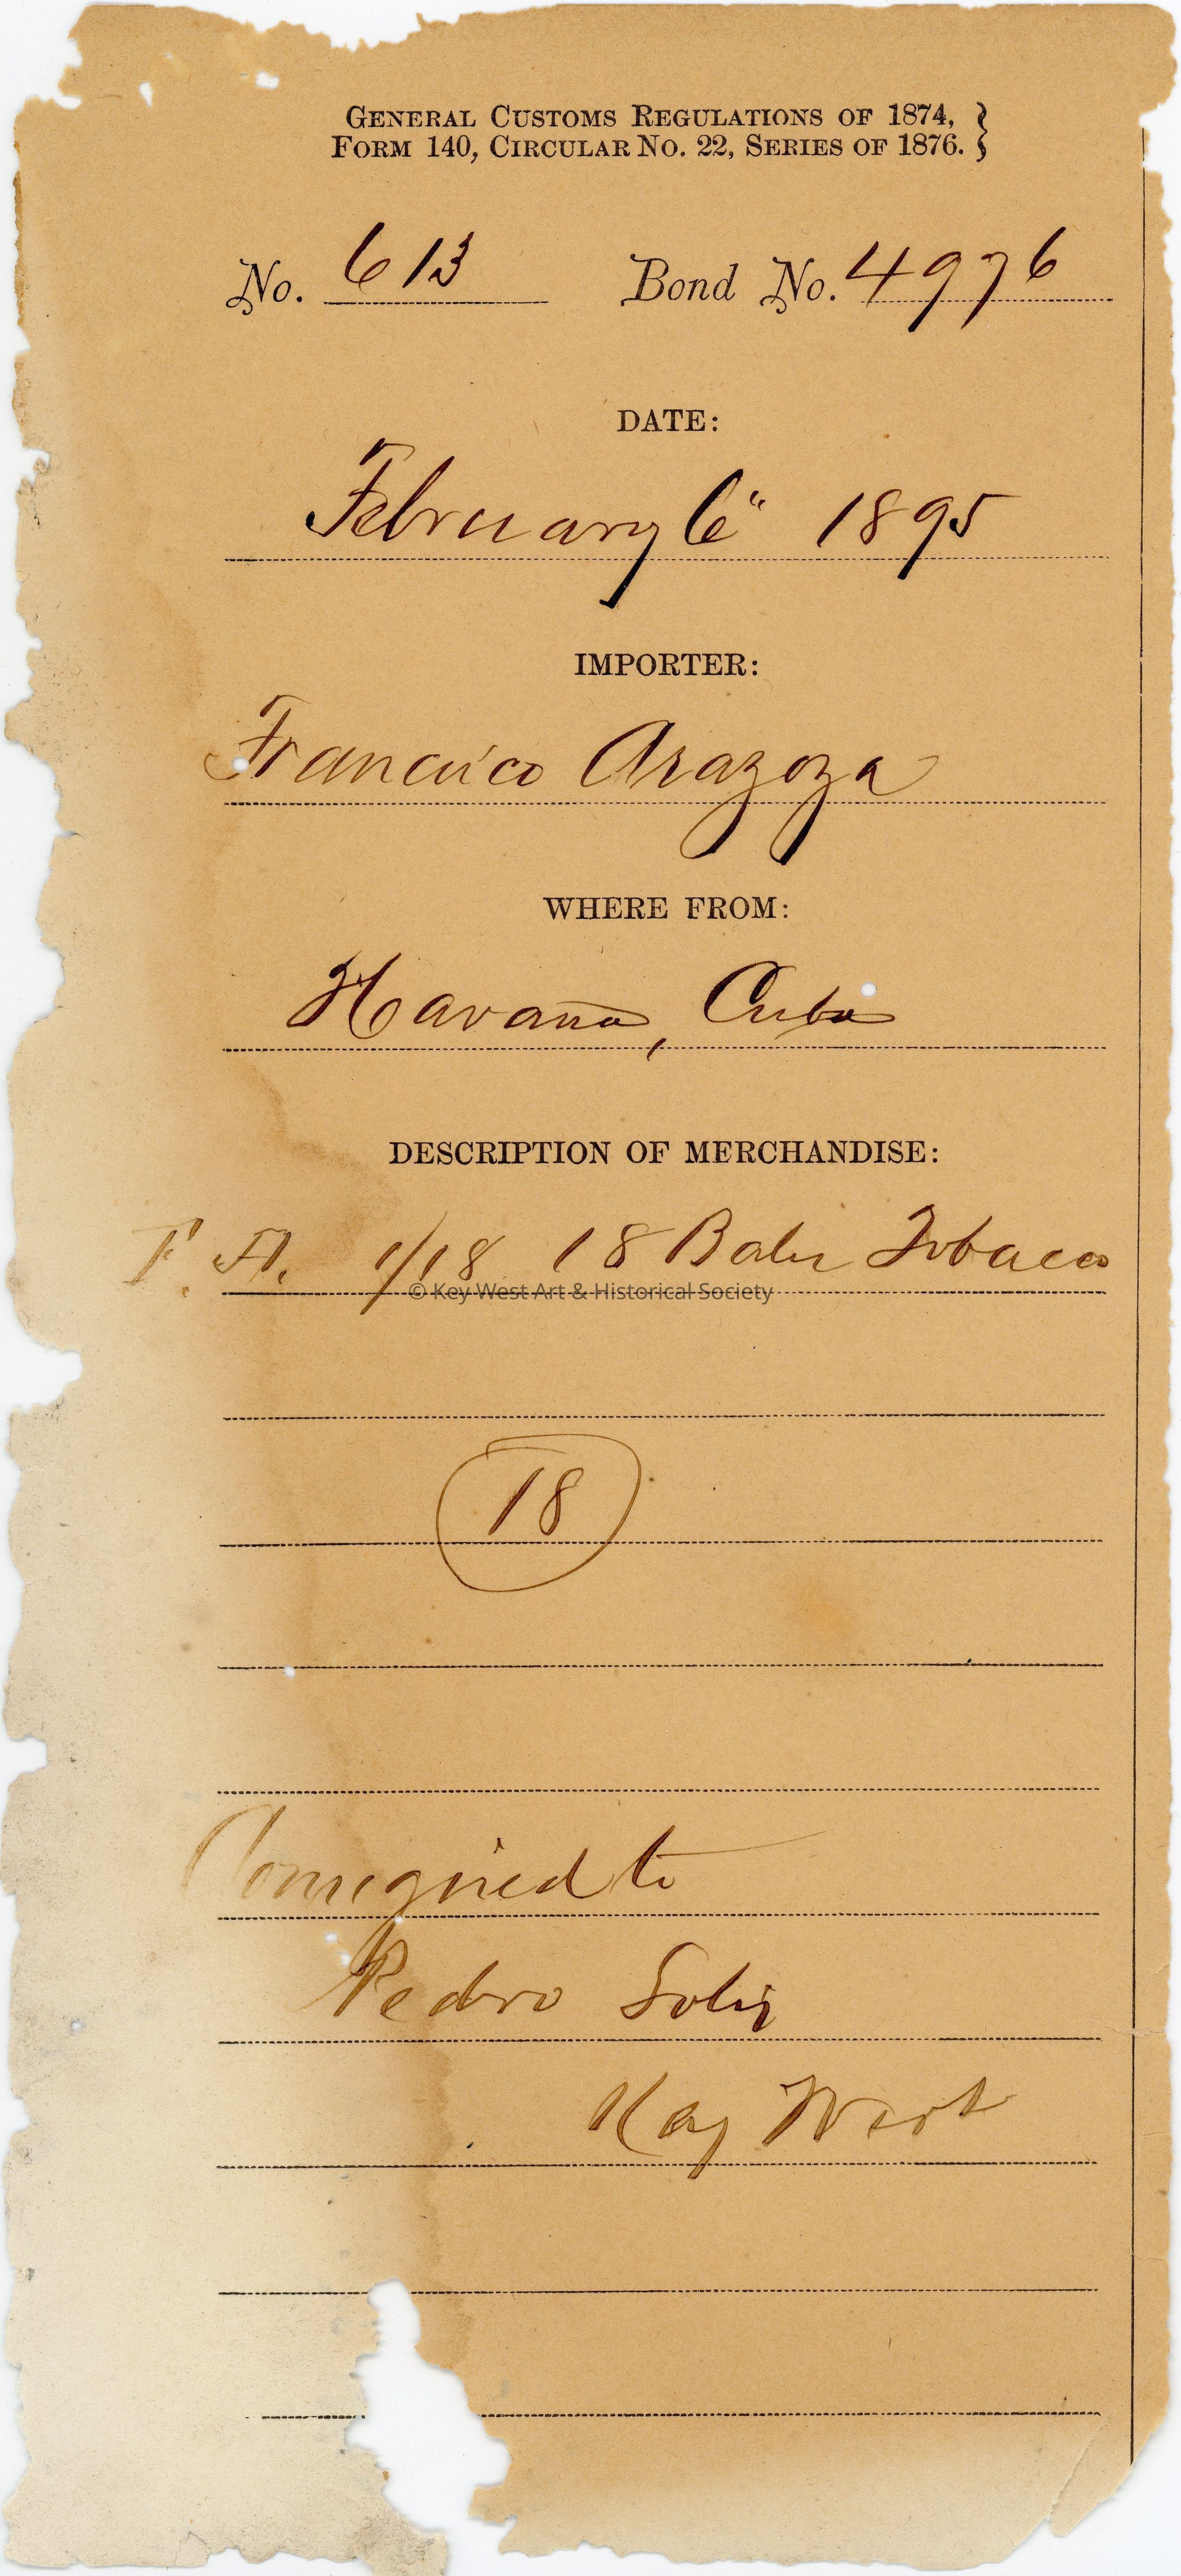 GENERAL CUSTOMS REGULATIONS OF 1874, }
FORM 140, CIRCULAR NO. 22, SERIES OF 1876. }
No. 613 Bond No. 4976
DATE:
February 6" 1895
IMPORTER:
Francisco Arazoza
WHERE FROM:
Havana, Cuba
DESCRIPTION OF MERCHANDISE:
1/18 18 Bales Tobacco
© Key West Art & Historical Society
18
Consigned to
Pedro Solis
Key West